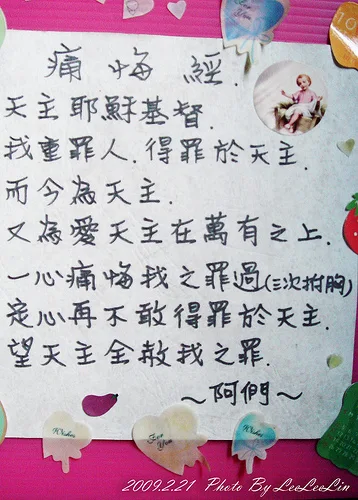 痛悔經.
天主耶穌基督.
我重罪人.得罪於天主.
而今為天主.
又為愛天主在萬有之上.
一心痛悔我之罪過(三次拊胸)
定心再不敢得罪於天主.
望天主全赦我之罪.
~阿們~
Wishes
For You
Wishes
10
2009.2.21 Photo By LeeLeeLin